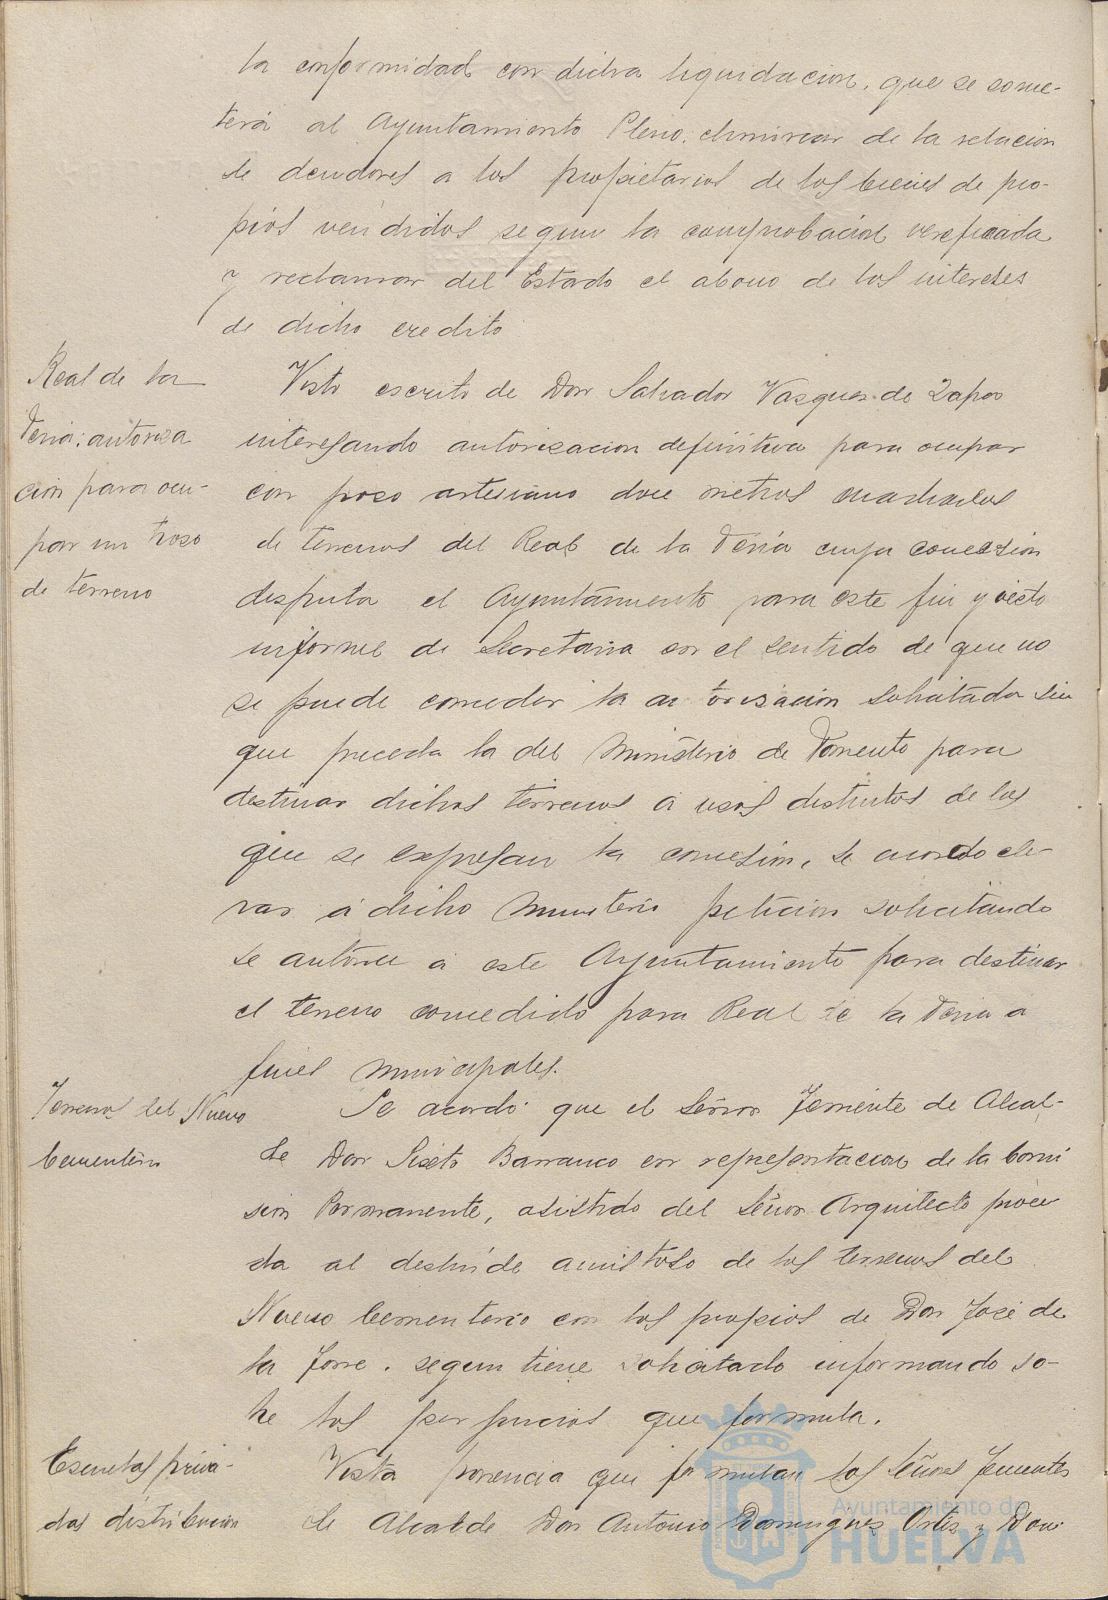 la conformidad con dicha liquidacion, que se some-
terá al Ayuntamiento Pleno, eliminar de la relacion
de deudores a los propietarios de los bienes de pro-
pios vendidos segun la comprobacion verificada
y reclamar del Estado el abono de los intereses
de dicho credito
Real de la
Feria: autoriza
cion para ocu-
par un trozo
de terreno
Visto escrito de Don Salvador Vasquez de Zapa
interesando autorizacion definitiva para ocupar
con pozo artesiano doce metros cuadrados
de terrenos del Real de la Feria cuya concesion
disfruta el Ayuntamiento para este fin y visto
informe de Secretaria en el sentido de que no
se puede conceder la autorizacion solicitada sin
que preceda la del Ministerio de Fomento para
destinar dichos terrenos a usos distintos de los
que se expresan la concesion, se acordo ele-
var á dicho Ministerio peticion solicitando
se autorice a este Ayuntamiento para destinar
el terreno concedido para Real de la Feria a
fines municipales.
Terrenos del Nuevo
Cementerio
Se acordó que el Señor Teniente de Alcal-
de Don Sixto Barranco en representacion de la Comi
sion Permanente, asistido del Señor Arquitecto proce
da al deslinde amistoso de los terrenos del
Nuevo Cementerio con los propios de Don José de
la Torre, segun tiene solicitado informando so-
bre los perjuicios que formula.
Escuelas priva-
das distribucion
Vista ponencia que formulan los Señores Tenientes
de Alcalde Don Antonio Dominguez Ortiz y Don
Ayuntamiento de
HUELVA